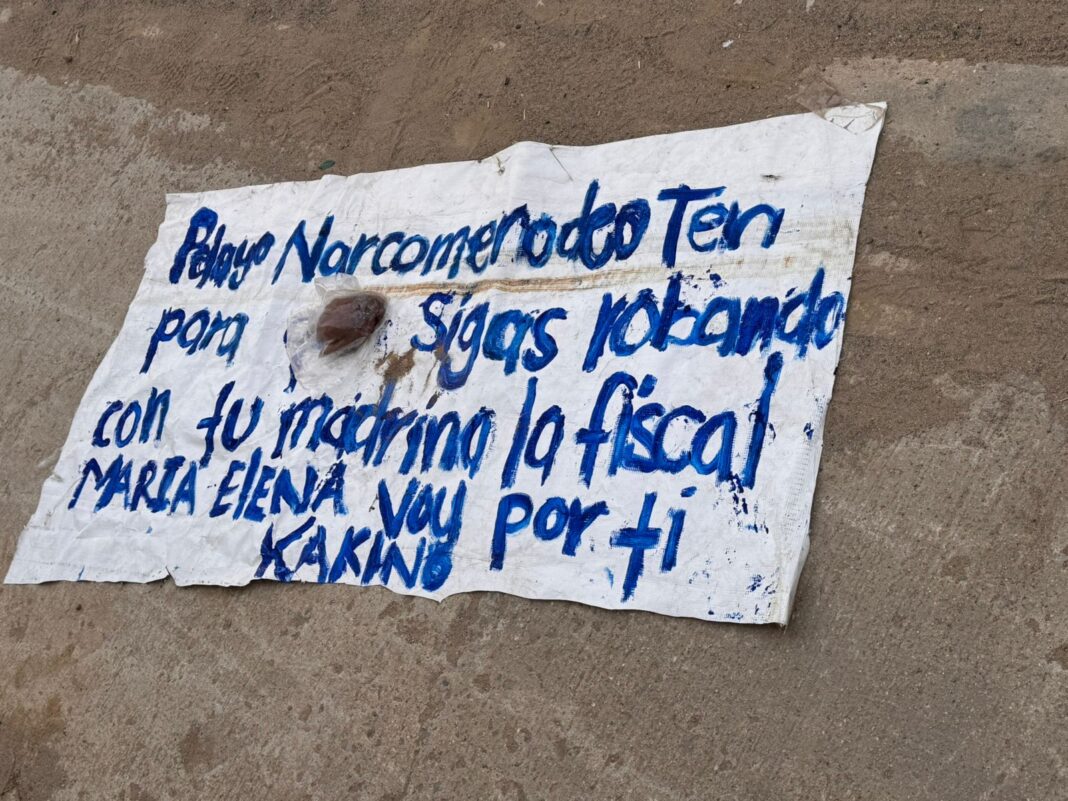 Pelayo Narcomenodeo Ten
para Sigas robando
con tu madrina la fiscal
MARIA ElENA Voy por ti
KAKINO